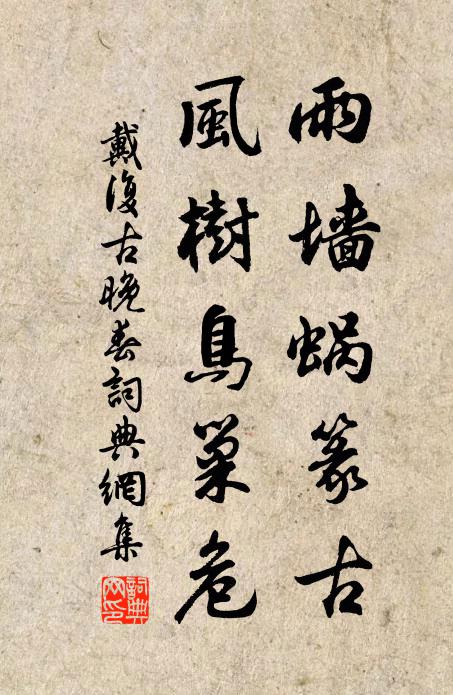 雨墙蜗篆古
風樹鳥巢危
戴復古晚春詞典網集
詞典网印